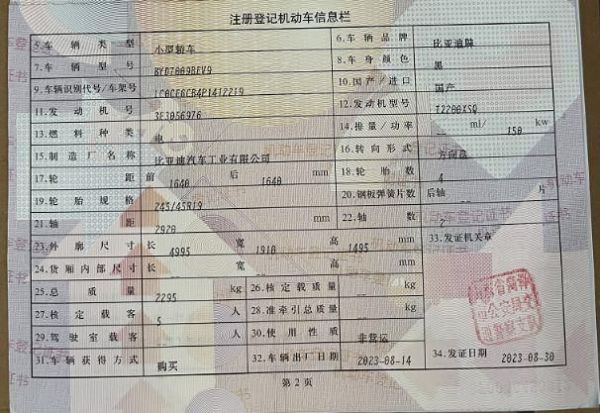 注册登记机动车信息栏
5.车辆类型 小型轿车 6.车辆品牌 比亚迪牌
7.车辆型号 BYD7009BEV9 8.车身颜色 黑
9.车辆识别代号/车架号 10.国产/进口 国产
11.发动机号 3F3056976 12.发动机型号 TZ200XSQ
13.燃料种类 电 14.排量/功率 -- ml/ 150 kw
15.制造厂名称 比亚迪汽车工业有限公司 16.转向形式 方向盘
17.轮距 前 1640 后 1640 mm 18.轮胎数 4
19.轮胎规格 245/45R19 20.钢板弹簧片数 后轴 -- 片
21.轴距 2920 mm 22.轴数 2
23.外廓尺寸 长 4995 宽 1910 高 1495 mm 33.发证机关章
24.货厢内部尺寸 长 -- 宽 -- 高 -- mm
25.总质量 2295 kg 26.核定载质量 -- kg
27.核定载客 5 人 28.准牵引总质量 -- kg
29.驾驶室载客 -- 人 30.使用性质 非营运
31.车辆获得方式 购买 32.车辆出厂日期 2023-08-14 34.发证日期 2023-08-30
第2页